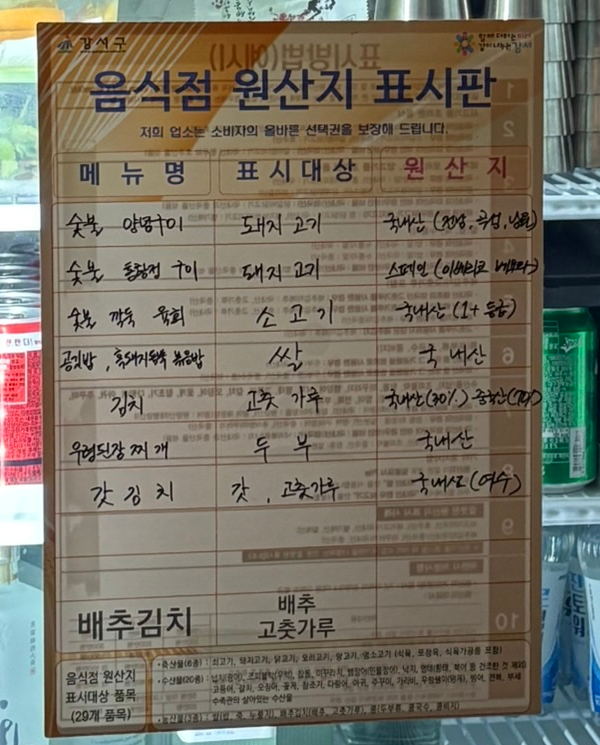 강서구
함께 더하는 미래
같이 나누는 강서
음식점 원산지 표시판
저희 업소는 소비자의 올바른 선택권을 보장해 드립니다.
메뉴명 표시대상 원산지
숯불 양념구이 돼지 고기 국내산
숯불 구이 돼지 고기 스페인 (이베리코
숯불 깍둑 육회 소고기 국내산 (1+ 등급)
공깃밥, 흑돼지 볶음밥 쌀 국내산
김치 고춧가루 국내산(30%) 중국산(70%)
우렁된장찌개 두부 국내산
갓김치 갓, 고춧가루 국내산 (여수)
배추김치 배추
고춧가루
음식점 원산지
표시대상 품목
(29개 품목)
•축산물(6종) : 쇠고기, 돼지고기, 닭고기, 오리고기, 양고기, 염소고기 (식육, 포장육, 식육가공품 포함)
•수산물(20종) : 넙치(광어), 조피볼락(우럭), 참돔, 미꾸라지, 뱀장어(민물장어), 낙지, 명태(황태, 북어 등 건조한 것 제외)
고등어, 갈치, 오징어, 꽃게, 참조기, 다랑어, 아귀, 주꾸미, 가리비, 우렁쉥이(멍게), 방어, 전복, 부세
수족관의 살아있는 수산물
•농산물(3종) : 쌀(밥, 죽, 누룽지), 배추김치(배추, 고춧가루), 콩(두부류, 콩국수, 콩비지)